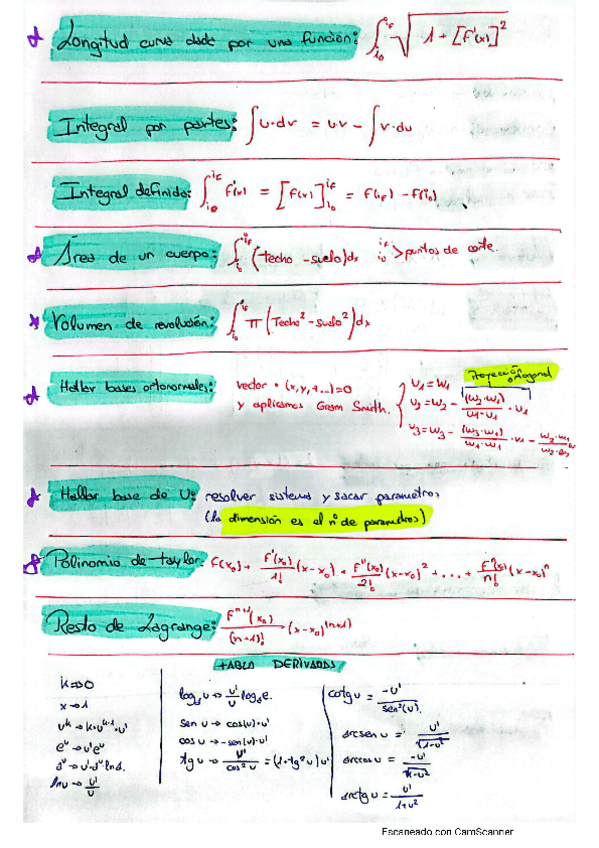 Longitud curva dada por una función: ∫_{i₀}^{i_F} √(1 + [F'(x)]²)
Integral por partes: ∫u·dv = u·v − ∫v·du
Integral definida: ∫_{i₀}^{i_F} F'(x) = [F(x)]_{i₀}^{i_F} = F(i_F) − F(i₀)
Área de un cuerpo: ∫_{i₀}^{i_F} (techo − suelo)dx  i_F i₀ > puntos de corte.
Volumen de revolución: ∫_{i₀}^{i_F} π(Techo² − suelo²)dx
Proyección ortogonal
Hallar bases ortonormales: vector • (x, y, t...) = 0
y aplicamos Gram Smith.
u₁ = w₁
u₂ = w₂ − (w₂·w₁)/(w₁·w₁) · u₁
u₃ = w₃ − (w₃·w₁)/(w₁·w₁) · v₁ −
Hallar base de U: resolver sistema y sacar parametros
(la dimensión es el nº de parametros)
Polinomio de taylor: F(x₀) + F'(x₀)/1! (x − x₀) + F''(x₀)/2! (x − x₀)² + ... + (x − x₀)ⁿ
Resto de Lagrange: Fⁿ⁺¹(x₀)/(n+1)! (x − x₀)⁽ⁿ⁺¹⁾
TABLA DERIVADAS
k → 0
x → 1
uᵏ → k·uᵏ⁻¹·u'
eᵘ → u'eᵘ
aᵘ → u'·aᵘ ln a.
ln u → u'/u
logₐ u → u'/u logₐ e.
sen u → cos(u)·u'
cos u → −sen(u)·u'
tg u → u'/cos² u = (1+tg² u) u'
cotg u = −u'/sen²(u).
arcsen u = u'/√(1−u²)
arccos u = −u'/√(1−u²)
arctg u = u'/(1+u²)
Escaneado con CamScanner